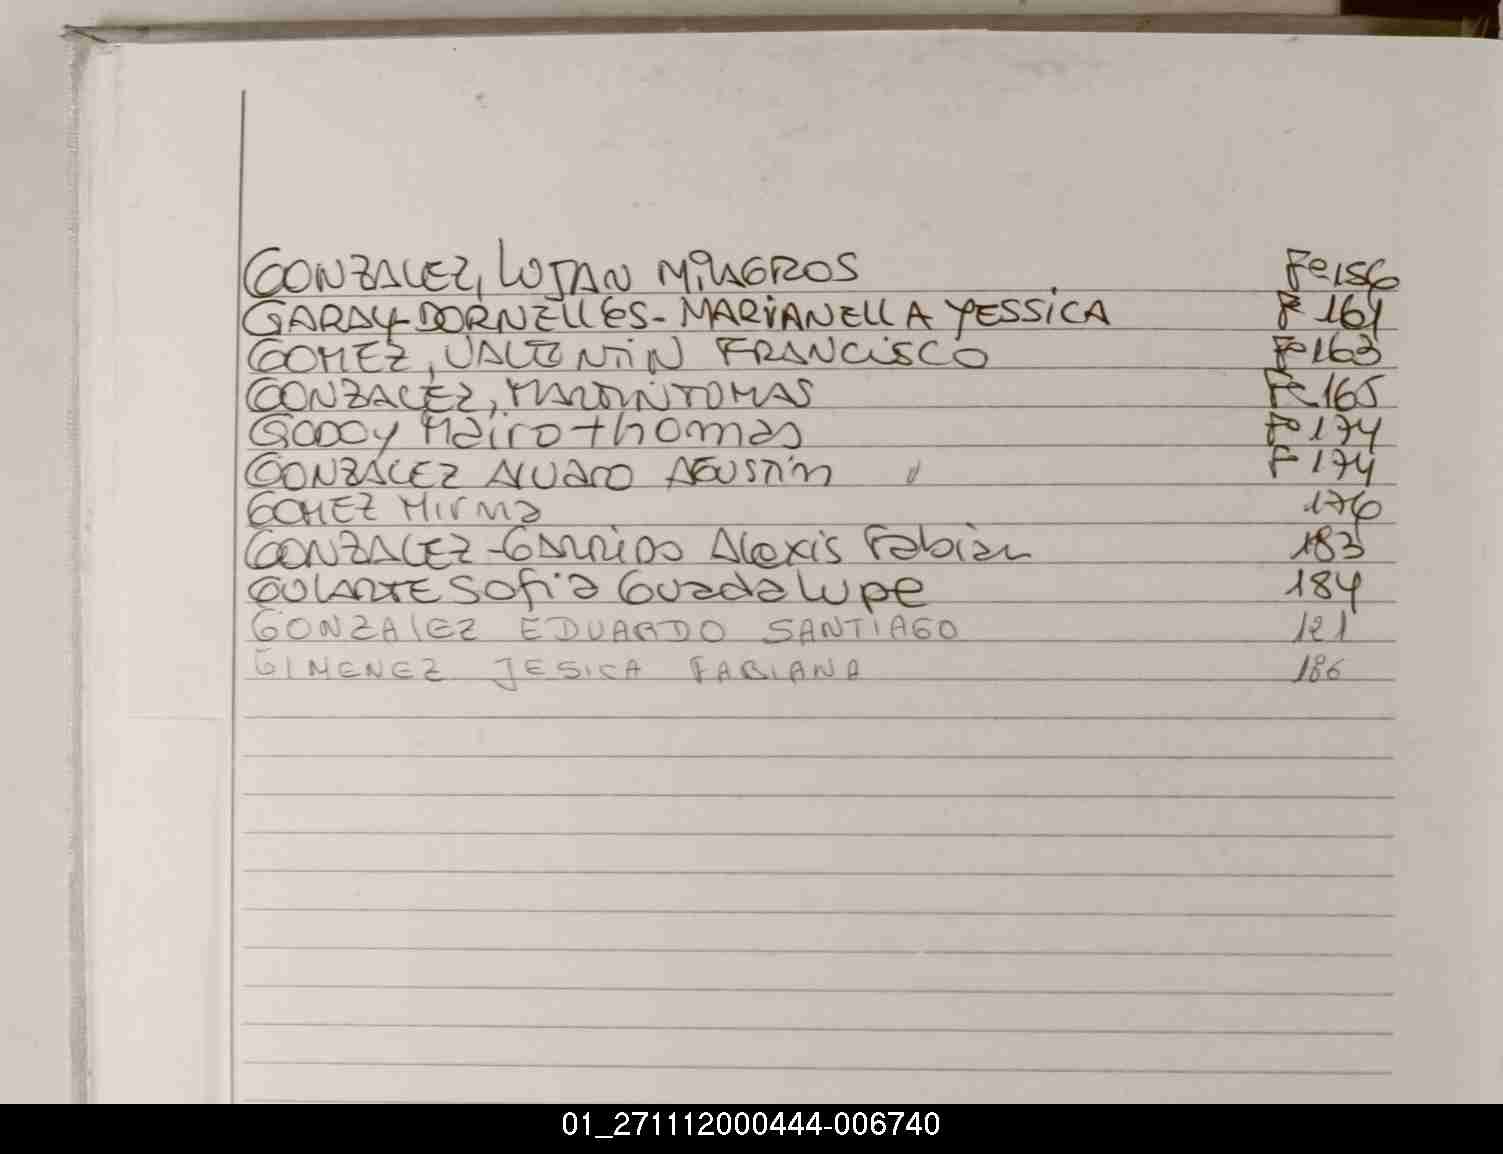 GONZALEZ, LUJAN MILAGROS Fº 156
GARAY-DORNELLES-MARIANELLA YESSICA Fº 161
GOMEZ, VALENTIN FRANCISCO Fº 163
GONZALEZ, MARTIN TOMAS Fº 165
GODOY Mairo thomas Fº 174
GONZALEZ Alvaro AGUSTIN F 174
GOMEZ Mirna 176
GONZALEZ-GARRIDO Alexis Fabian 183
GULARTE Sofia Guadalupe 184
GONZALEZ EDUARDO SANTIAGO 121
GIMENEZ JESICA FABIANA 186
01_271112000444-006740